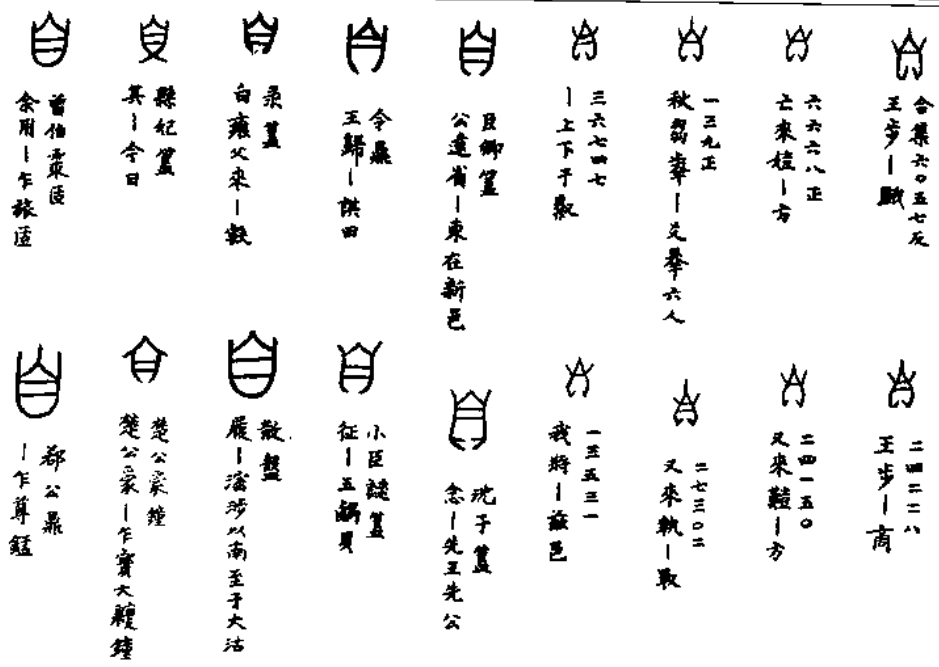 合集六〇五七反
王步｜
六六六八正
亡來｜方
一三九正
秋芻｜爻六人
三六七四七
｜上下于
臣卿簋
公違省｜東在新邑
令鼎
王歸｜諆田
彔簋
白雍父來｜㝬
縣妃簋
其｜今日
曾伯霥匿
余用｜乍旅匿
二四二二八
王步｜商
二四一五〇
又來｜方
二七三〇二
又來執｜
一三五三一
我將｜茲邑
沈子簋
念｜先王先公
小臣謎簋
征｜五齵貝
散盤
履｜瀗涉以南至于大沽
楚公豪鐘
楚公豪｜乍寶大鐘
鄀公鼎
｜乍尊錳